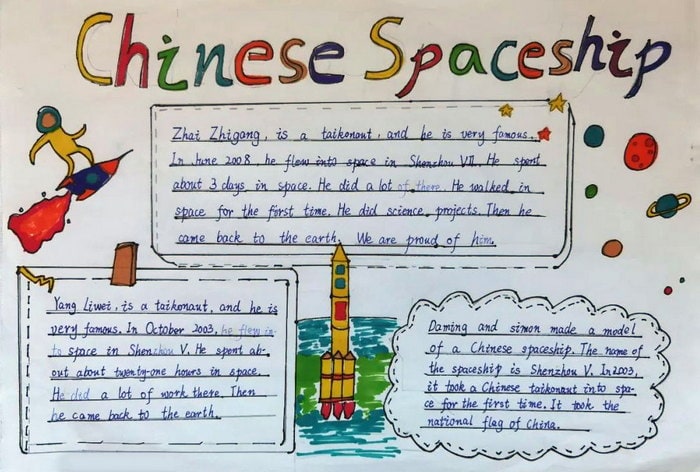 Chinese Spaceship
Zhai Zhigang, is a taikonaut, and he is very famous.
In June 2008, he flew into space in Shenzhou VII. He spent
about 3 days in space. He did a lot of there. He walked in
space for the first time. He did science projects. Then he
came back to the earth. We are proud of him.
Yang Liwei, is a taikonaut, and he is
very famous. In October 2003, he flew in-
to space in Shenzhou V. He spent ab-
out about twenty-one hours in space.
He did a lot of work there. Then
he came back to the earth.
Daming and simon made a model
of a Chinese spaceship. The name of
the spaceship is Shenzhou V. In 2003,
it took a Chinese taikonaut into spa-
ce for the first time. It took the
national flag of China.